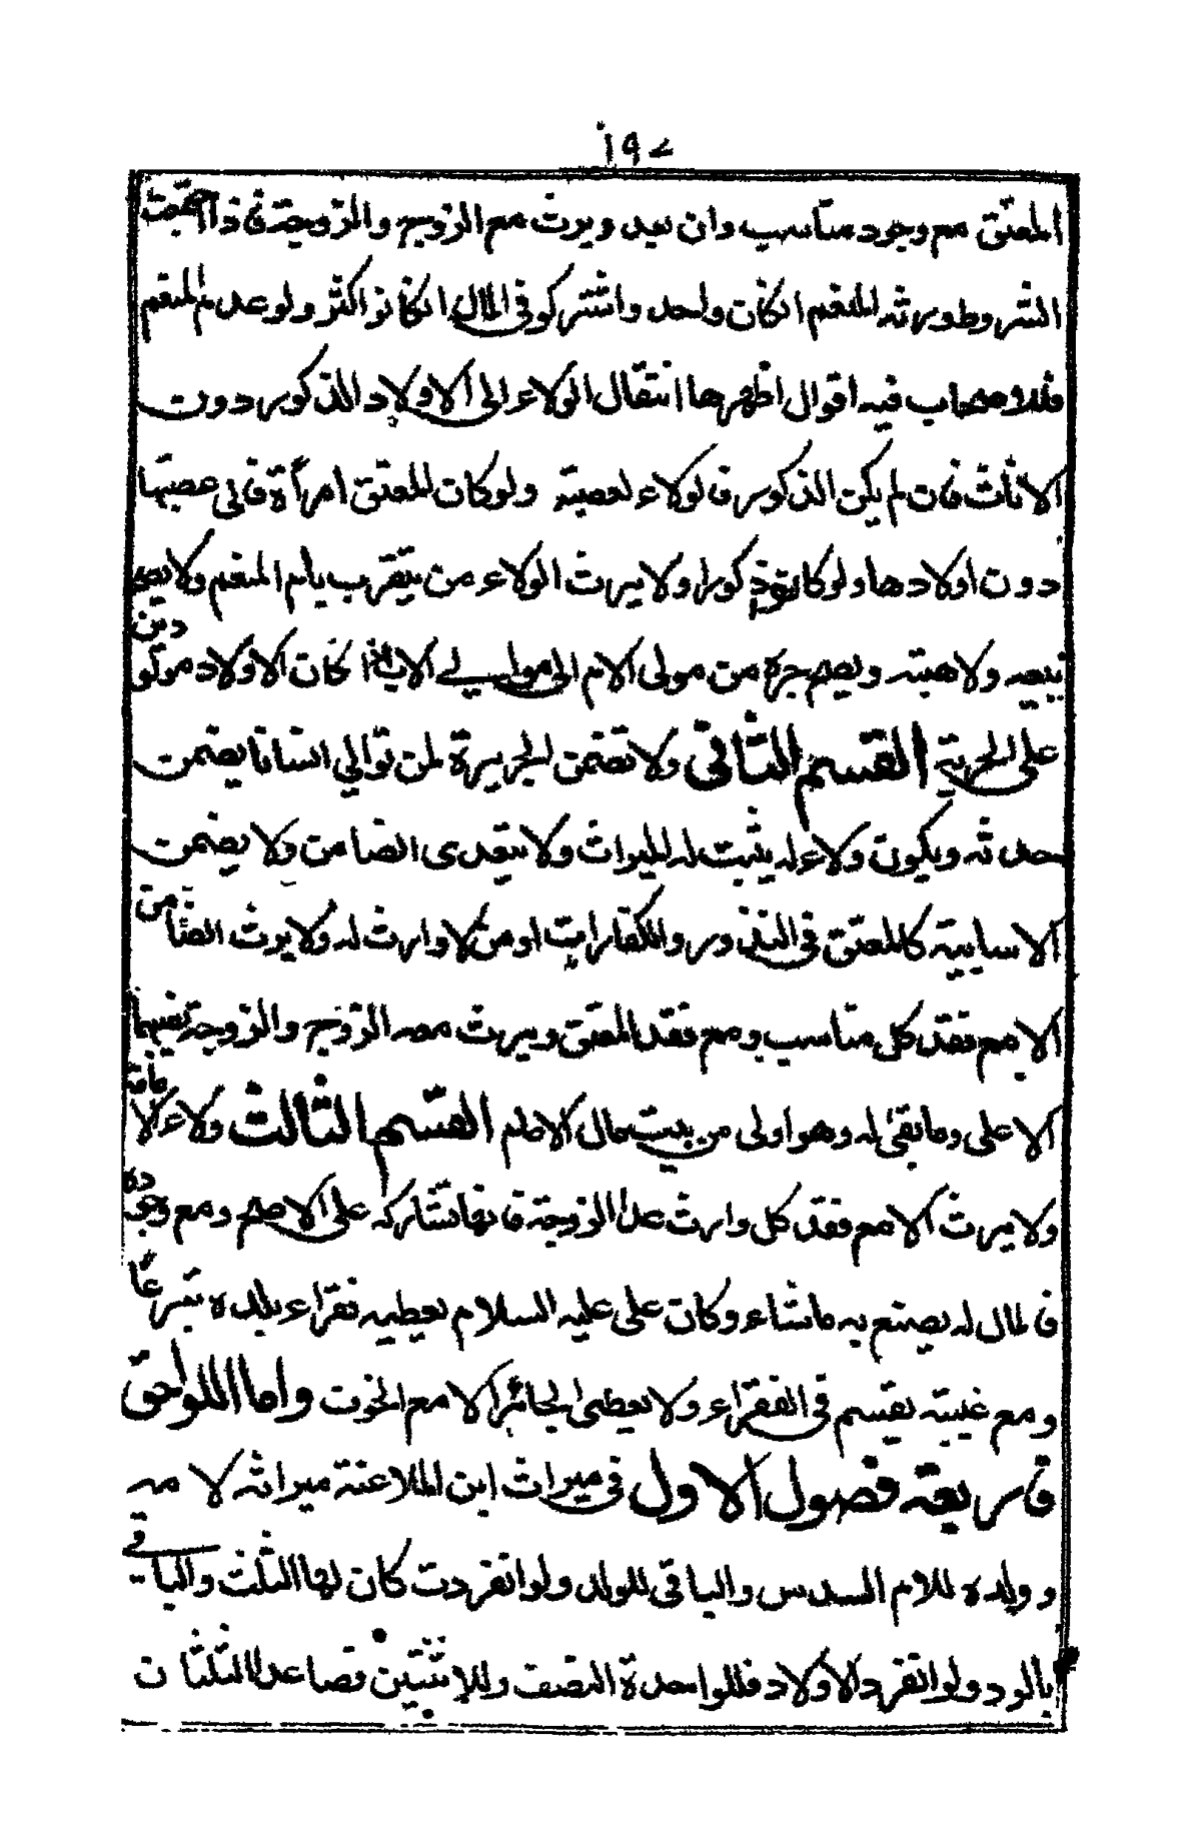 ١٩٢
المعتق مع وجود مناسب وان بعد ويرث مع الزوج والزوجة فاذا اجتمعت
الشروط ورثه المنعم انكان واحد واشتركو في المال انكانو اكثر ولو عدم المنعم
فللاصحاب فيه اقوال اظهرها انتقال الولاء الى الاولاد الذكور دون
الاناث فان لم يكن الذكور فالولاء لعصبته ولو كان المعتق امرأة فالى عصبتها
دون اولادها ولو كانو ذكورا ولا يرث الولاء من يتقرب بام المنعم ولا يصح
بيعه ولا هبته ويصح جره من مولى الام الى موالي الاب اذا كان الاولاد مولودين
على الحرية القسم الثاني ولاء تضمن الجريرة لمن توالي انسانا يضمن
حدثه ويكون ولاءه له يثبت له الميراث ولا يتعدى الضامن ولا يضمن
الا سايبة كالمعتق في النذور والكفارات او من لا وارث له ولا يرث الضامن
الا مع فقد كل مناسب ومع فقد المعتق ويرث معه الزوج والزوجة نصيبهما
الاعلى وما بقى له وهو اولى من بيت مال الامام القسم الثالث ولاء الامامة
ولا يرث الا مع فقد كل وارث عدا الزوجة فانها تشاركه على الاصح ومع وجوده
فالمال له يصنع به ماشاء وكان على عليه السلام يعطيه فقراء بلده تبرعا
ومع غيبته يقسم في الفقراء ولا يعطى الجائر الا مع الخوف واما اللواحق
فاربعة فصول الاول في ميراث ابن الملاعنة ميراثه لامه
وولده للام السدس والباقي للولد ولو انفردت كان لها الثلث والباقي
بالرد ولو انفرد الاولاد فللواحدة النصف وللاثنتين فصاعدا الثلثان